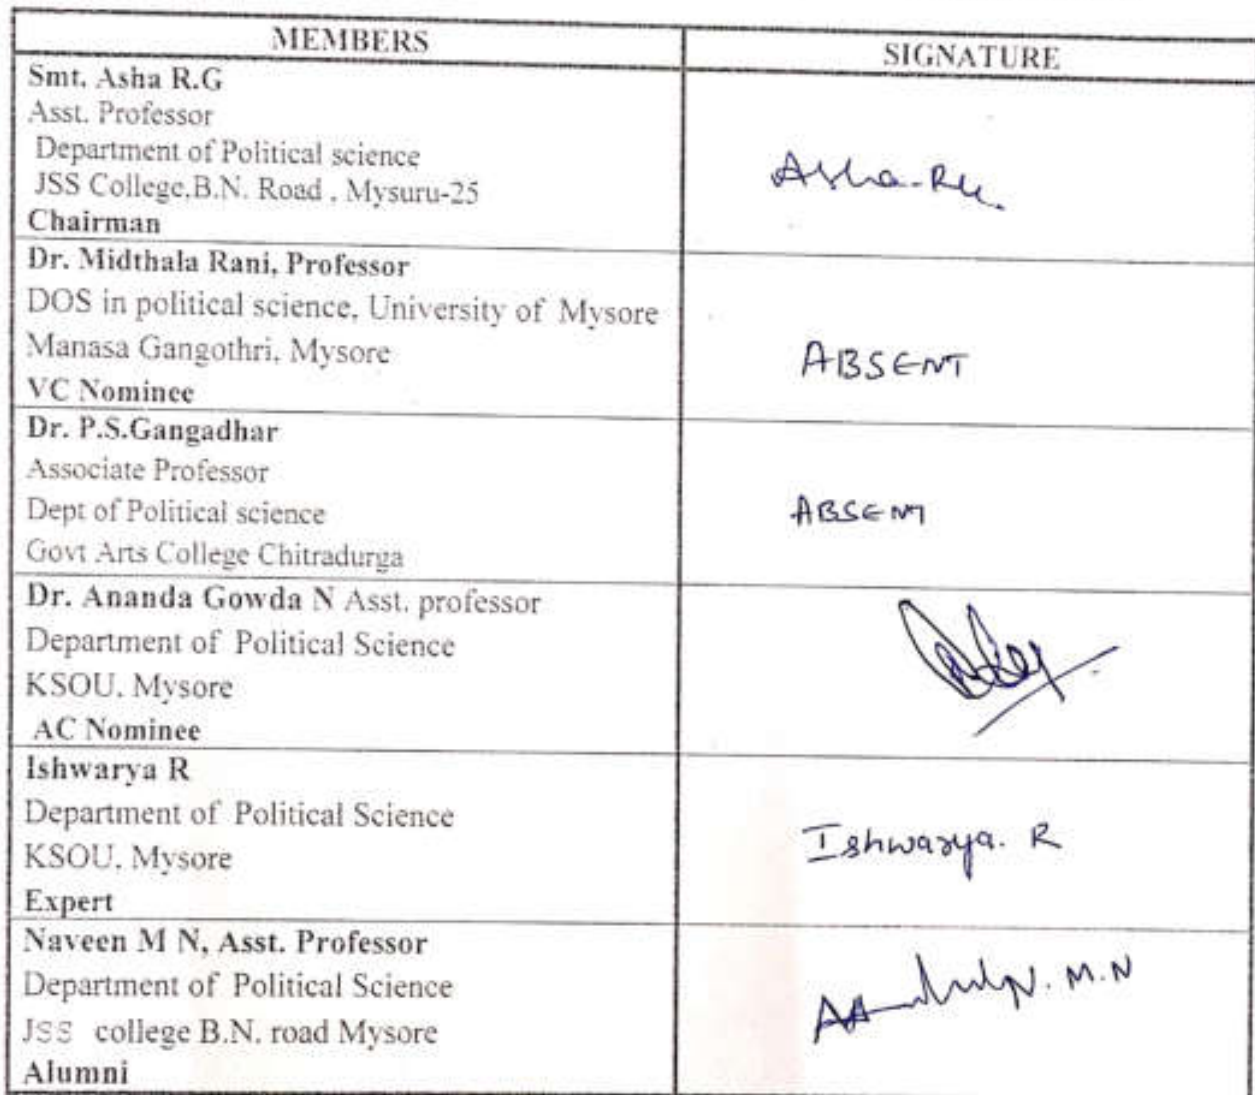 MEMBERS SIGNATURE
Smt. Asha R.G
Asst. Professor
Department of Political science
JSS College,B.N. Road , Mysuru-25
Chairman
Asha-RG.
Dr. Midthala Rani, Professor
DOS in political science, University of Mysore
Manasa Gangothri, Mysore
VC Nominee
ABSENT
Dr. P.S.Gangadhar
Associate Professor
Dept of Political science
Govt Arts College Chitradurga
ABSENT
Dr. Ananda Gowda N Asst. professor
Department of Political Science
KSOU, Mysore
AC Nominee
Ishwarya R
Department of Political Science
KSOU, Mysore
Expert
Ishwarya. R
Naveen M N, Asst. Professor
Department of Political Science
JSS college B.N. road Mysore
Alumni
M.N